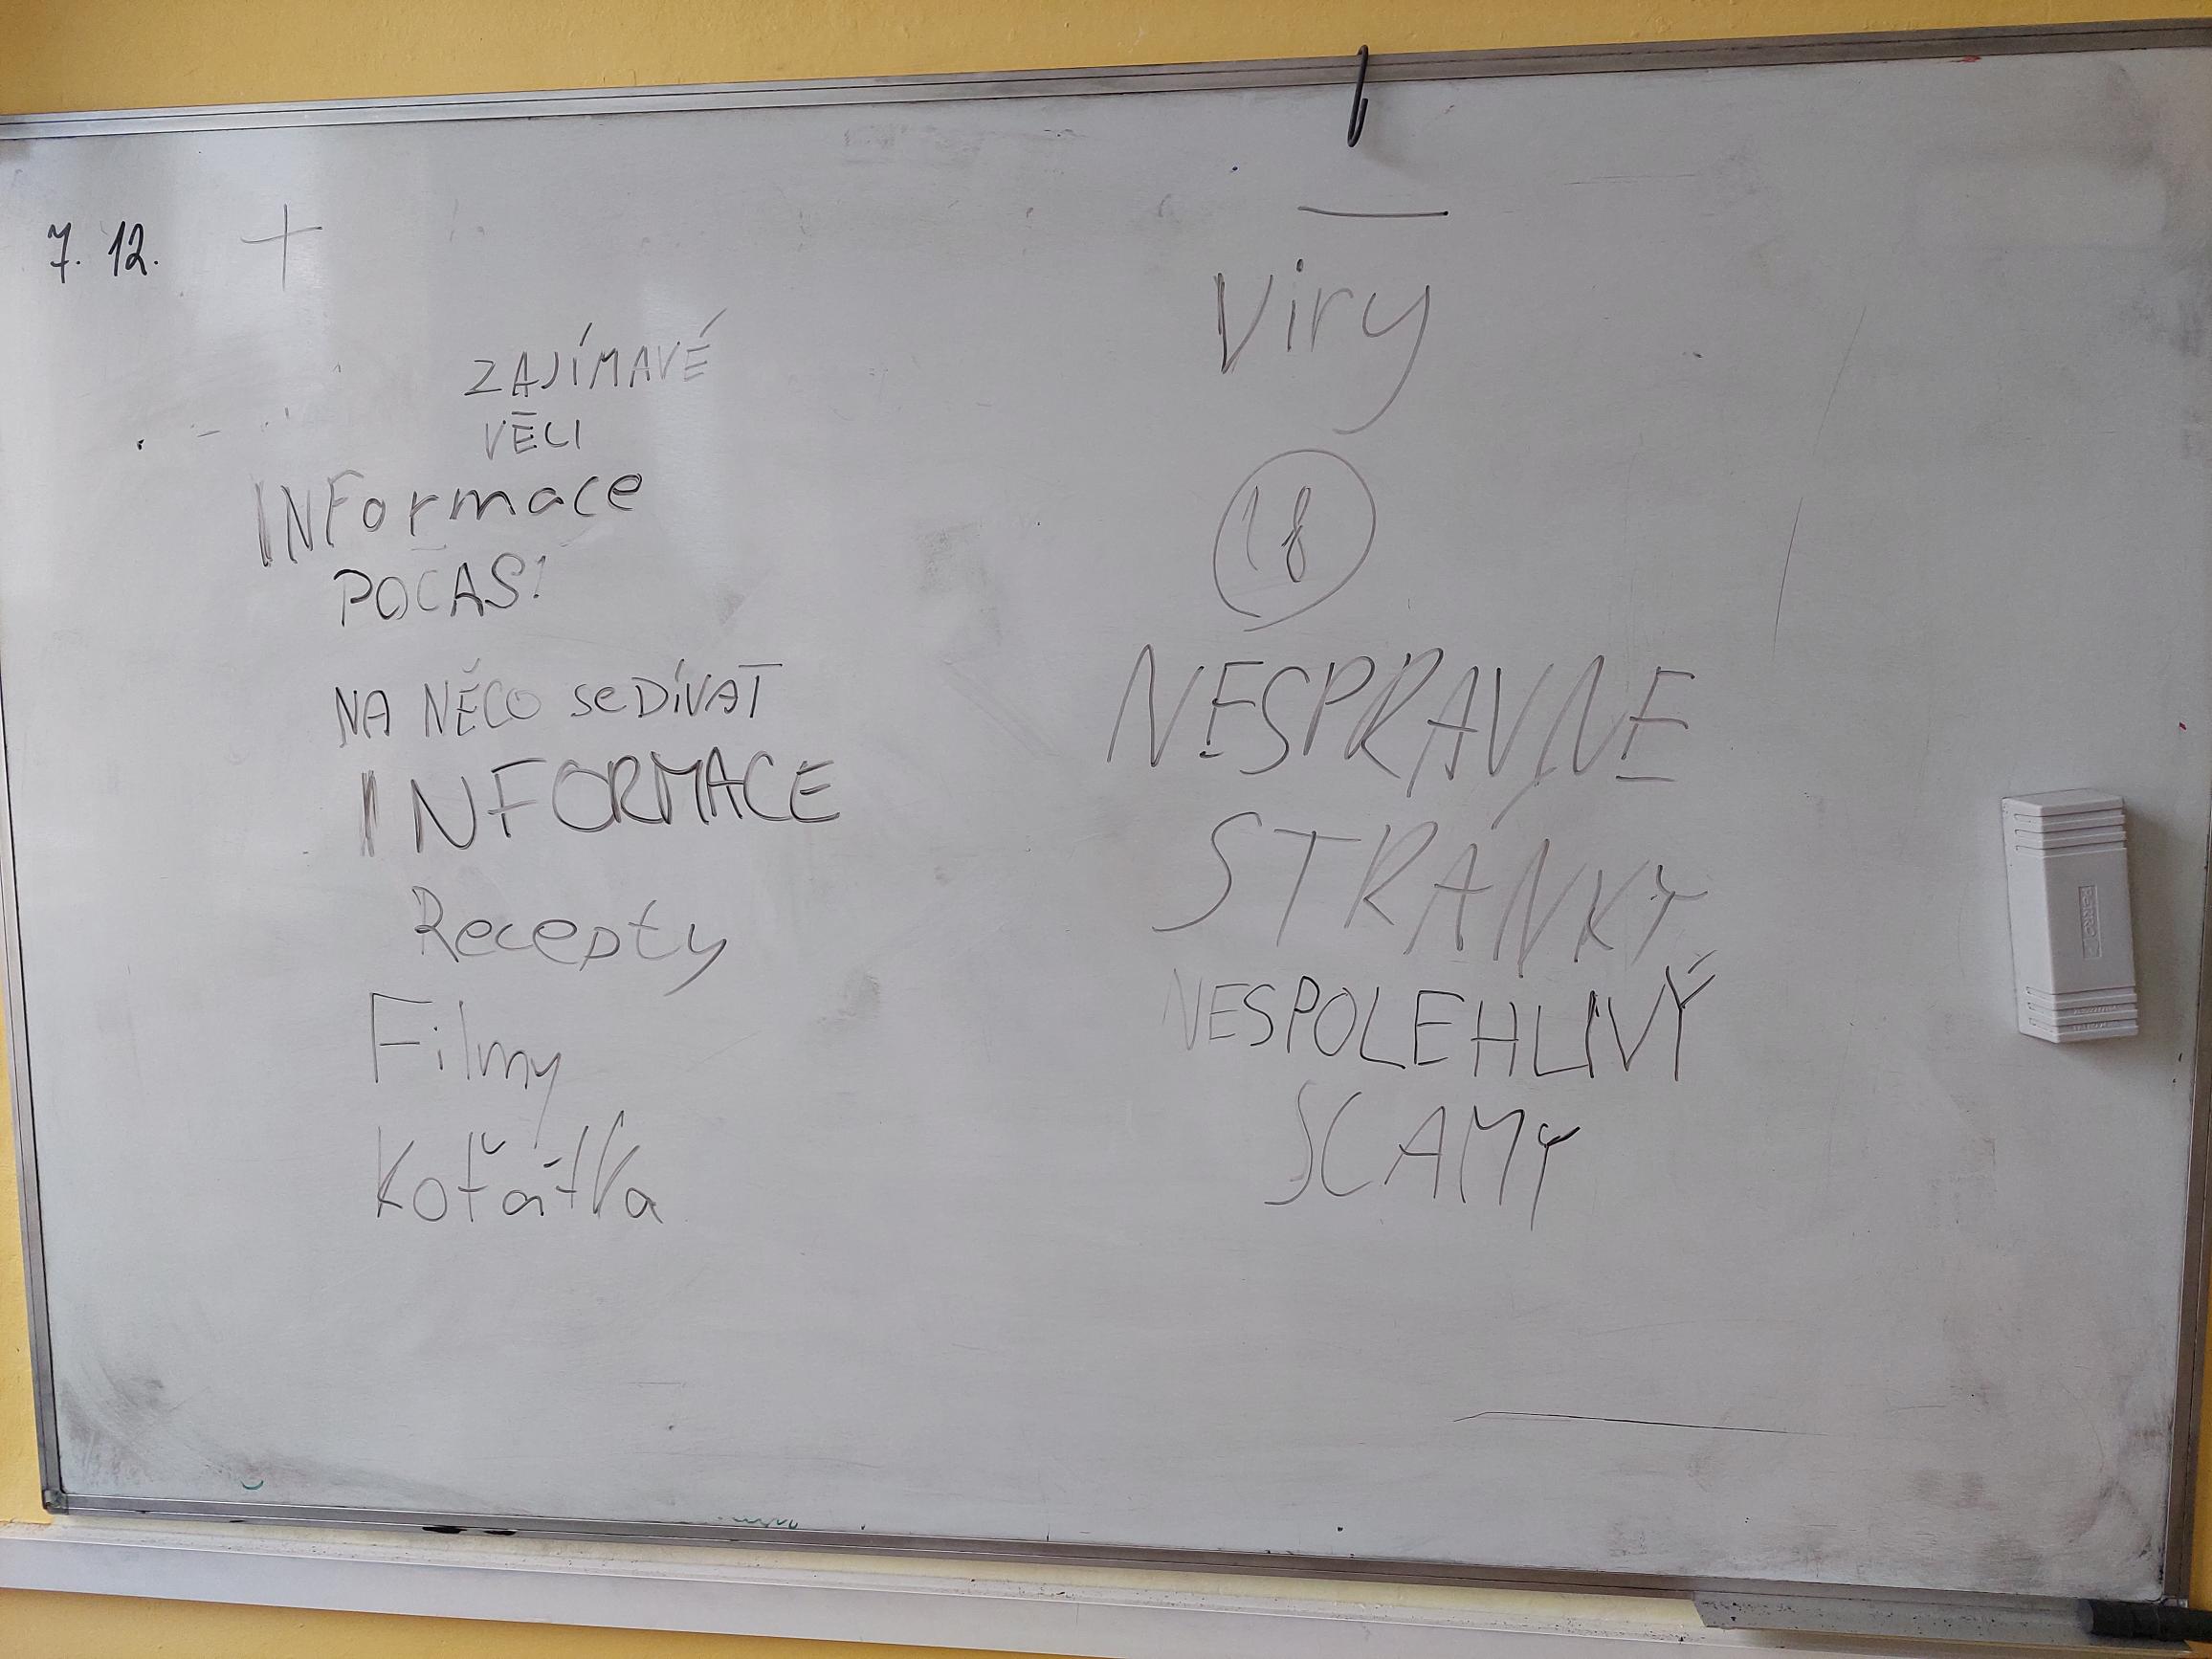 7. 12.
+
ZAJÍMAVÉ
VĚCI
INFormace
POČASÍ
NA NĚCO SE DÍVAT
INFORMACE
Recepty
Filmy
Koťátka
—
Viry
18
NESPRÁVNÉ
STRÁNKY
NESPOLEHLIVÝ
SCAMY